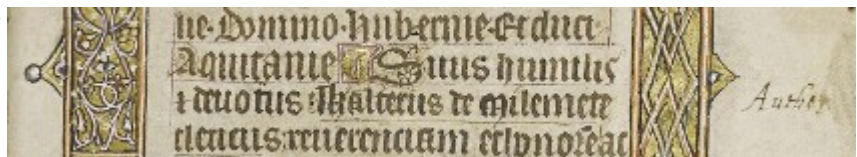 ne·Domino·hibernie·Et duci·
Aquitanie Suus humilis
⁊ deuotus Walterus de Milemete
clericus reuerenciam et honorem ac
Author